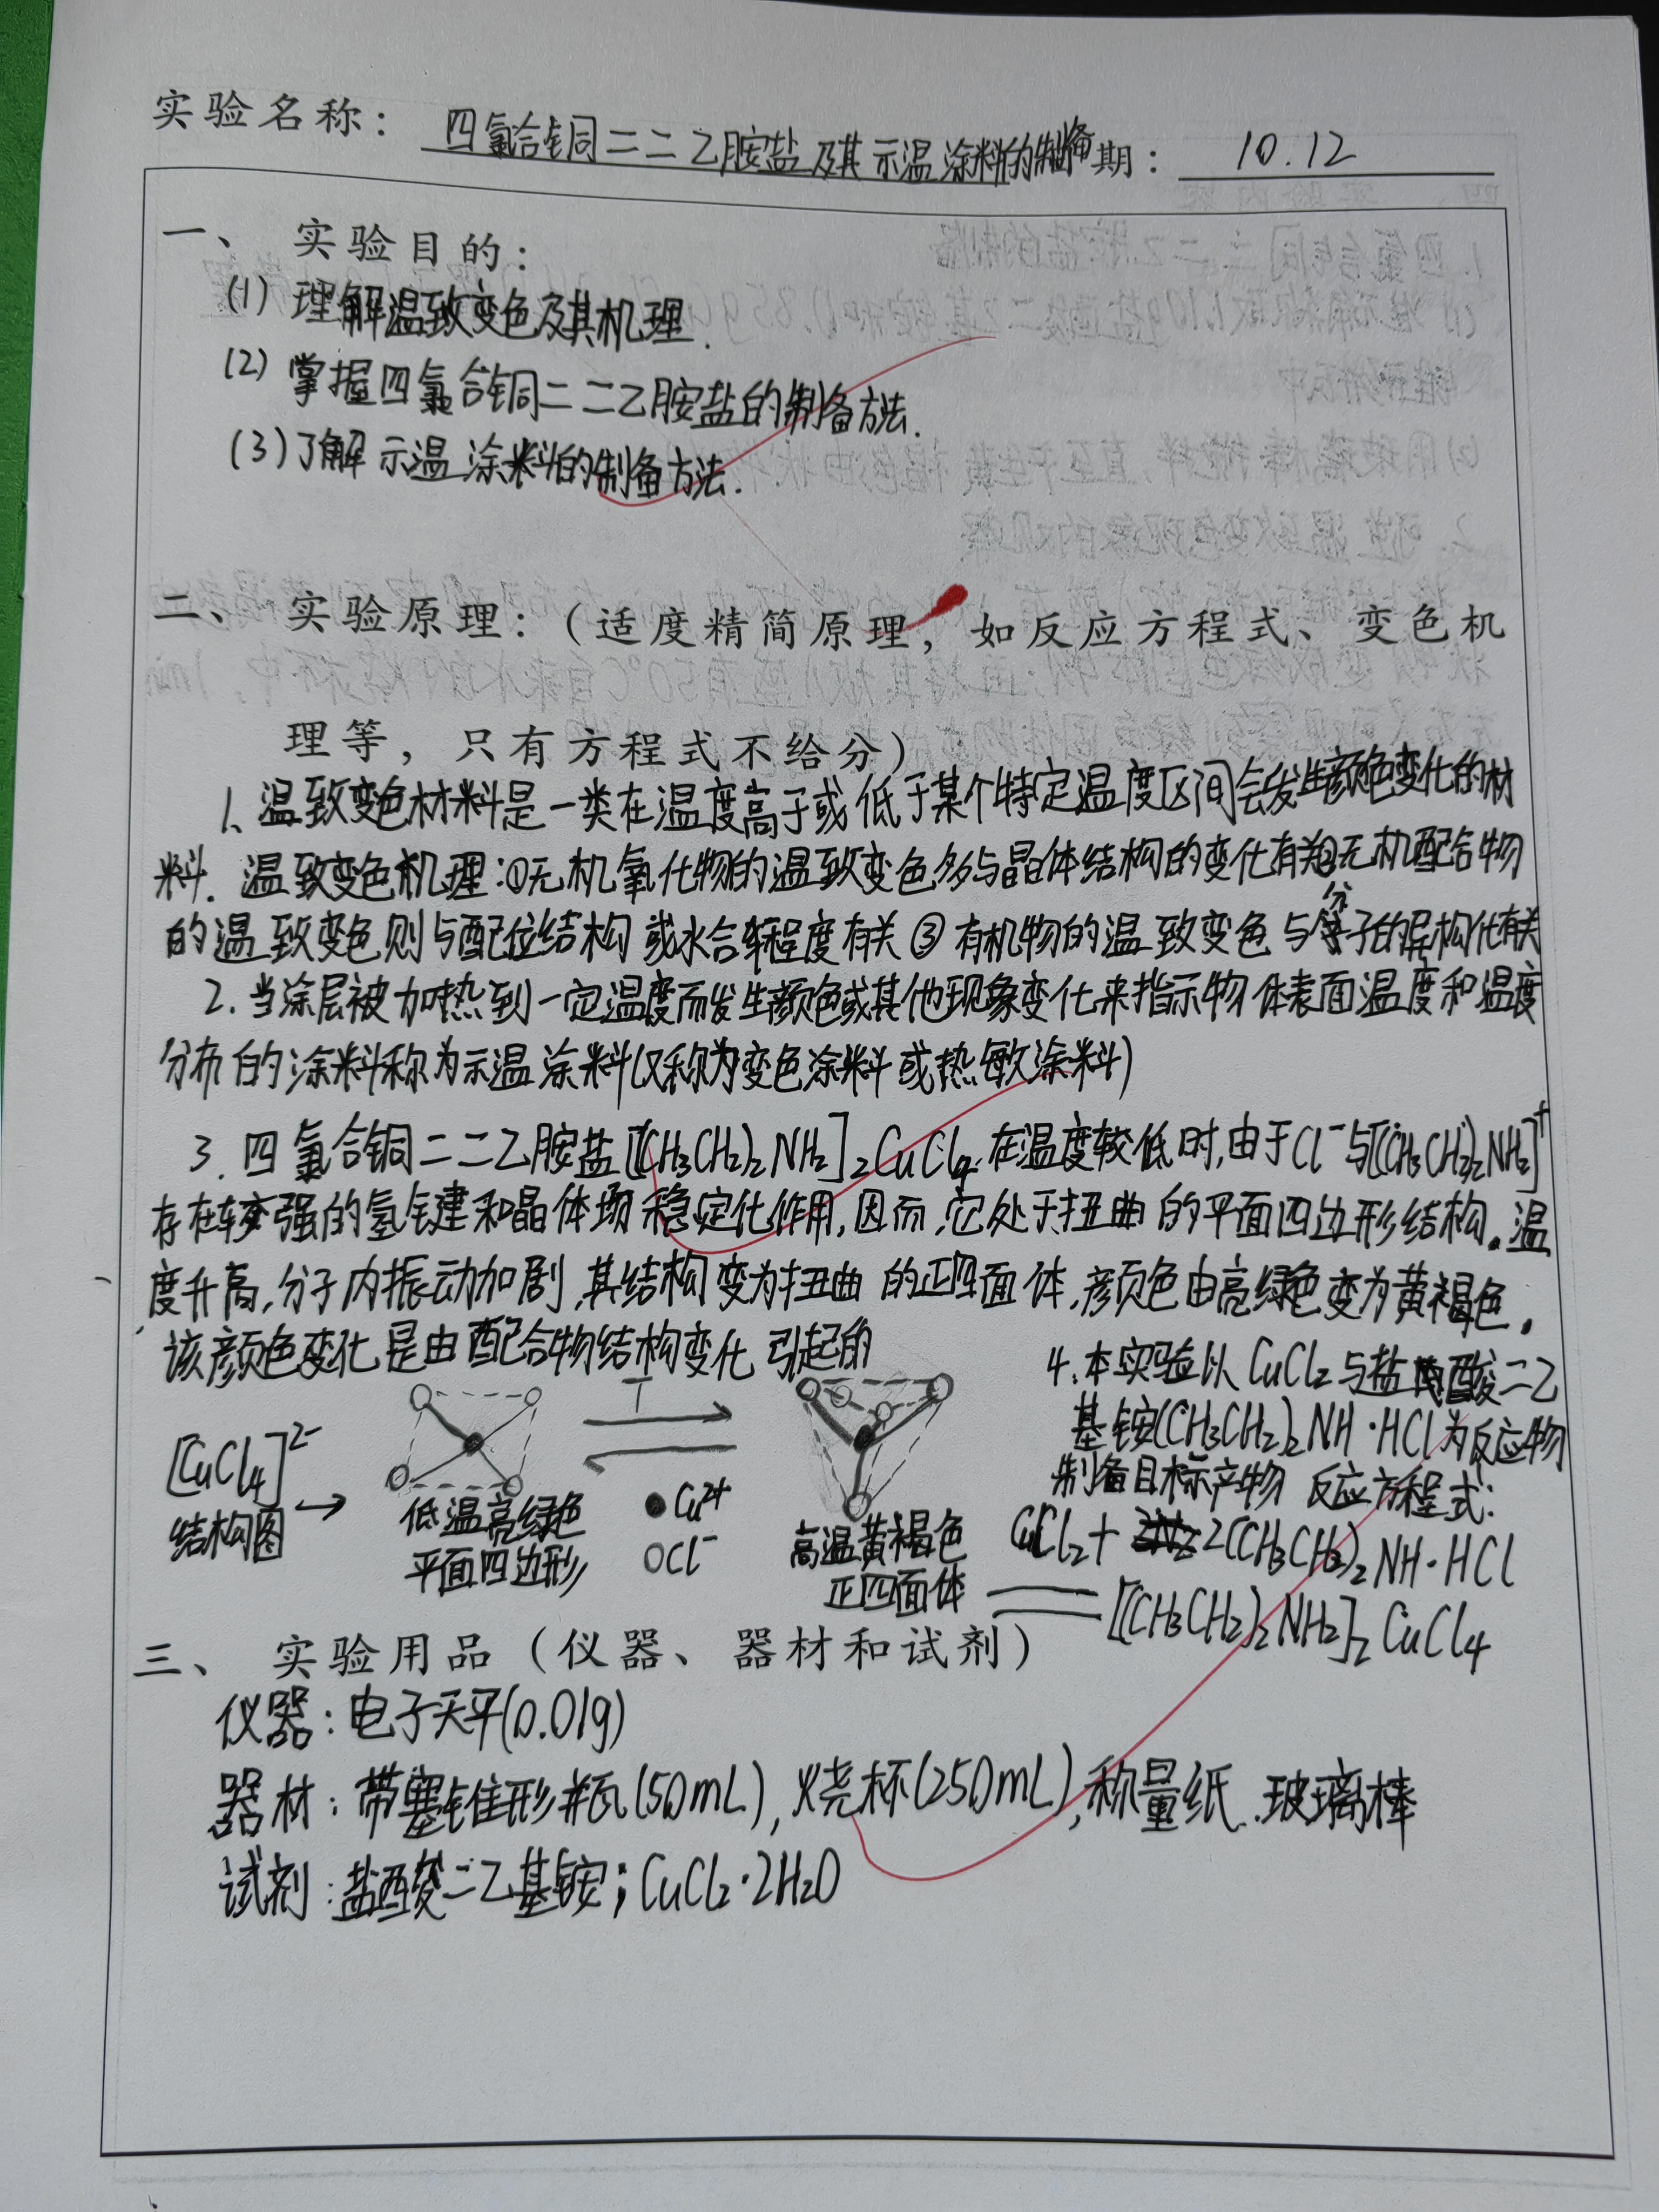 实验名称： 四氯合铜二二乙胺盐及其示温涂料的制备期： 10.12
一、 实验目的：
(1) 理解温致变色及其机理.
(2) 掌握四氯合铜二二乙胺盐的制备方法.
(3) 了解示温涂料的制备方法.
二、 实验原理：（适度精简原理，如反应方程式、变色机
理等，只有方程式不给分）
1、温致变色材料是一类在温度高于或低于某个特定温度区间会发生颜色变化的材
料. 温致变色机理:①无机氧化物的温致变色多与晶体结构的变化有关②无机配合物
的温致变色则与配位结构或水合程度有关③有机物的温致变色与分子的异构化有关
2. 当涂层被加热到一定温度而发生颜色或其他现象变化来指示物体表面温度和温度
分布的涂料称为示温涂料(又称为变色涂料或热敏涂料)
3. 四氯合铜二二乙胺盐[(CH3CH2)2NH2]2CuCl4.在温度较低时,由于Cl⁻与[(CH3CH2)2NH2]⁺
存在较强的氢键和晶体场稳定化作用,因而,它处于扭曲的平面四边形结构。温
度升高,分子内振动加剧,其结构变为扭曲的正四面体,颜色由亮绿色变为黄褐色。
该颜色变化是由配合物结构变化引起的
[CuCl4]²⁻
结构图→
低温亮绿色
平面四边形
T
●Cu²⁺
○Cl⁻
高温黄褐色
正四面体
4、本实验以CuCl2与盐酸二乙
基铵(CH3CH2)2NH·HCl为反应物
制备目标产物 反应方程式:
CuCl2+2(CH3CH2)2NH·HCl
══[(CH3CH2)2NH2]2CuCl4
三、 实验用品（仪器、器材和试剂）
仪器:电子天平(0.01g)
器材:带塞锥形瓶(50mL),烧杯(250mL),称量纸.玻璃棒
试剂:盐酸二乙基铵;CuCl2·2H2O